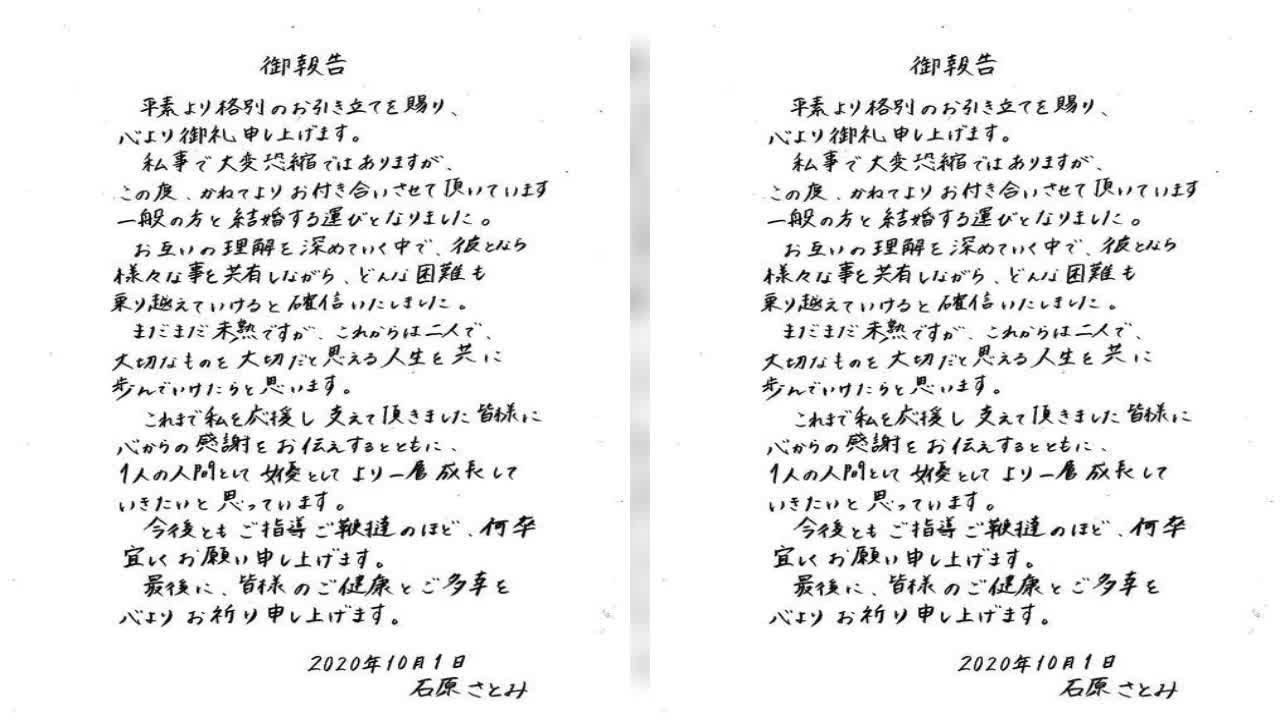 御報告
平素より格別のお引き立てを賜り、
心より御礼申し上げます。
私事で大変恐縮ではありますが、
この度、かねてよりお付き合いさせて頂いています
一般の方と結婚する運びとなりました。
お互いの理解を深めていく中で、彼となら
様々な事を共有しながら、どんな困難も
乗り越えていけると確信いたしました。
まだまだ未熟ですが、これからは二人で、
大切なものを大切だと思える人生を共に
歩んでいけたらと思います。
これまで私を応援し支えて頂きました皆様に
心からの感謝をお伝えするとともに、
1人の人間として女優としてより一層成長して
いきたいと思っています。
今後ともご指導ご鞭撻のほど、何卒
宜しくお願い申し上げます。
最後に、皆様のご健康とご多幸を
心よりお祈り申し上げます。
2020年10月1日
石原さとみ
御報告
平素より格別のお引き立てを賜り、
心より御礼申し上げます。
私事で大変恐縮ではありますが、
この度、かねてよりお付き合いさせて頂いています
一般の方と結婚する運びとなりました。
お互いの理解を深めていく中で、彼となら
様々な事を共有しながら、どんな困難も
乗り越えていけると確信いたしました。
まだまだ未熟ですが、これからは二人で、
大切なものを大切だと思える人生を共に
歩んでいけたらと思います。
これまで私を応援し支えて頂きました皆様に
心からの感謝をお伝えするとともに、
1人の人間として女優としてより一層成長して
いきたいと思っています。
今後ともご指導ご鞭撻のほど、何卒
宜しくお願い申し上げます。
最後に、皆様のご健康とご多幸を
心よりお祈り申し上げます。
2020年10月1日
石原さとみ